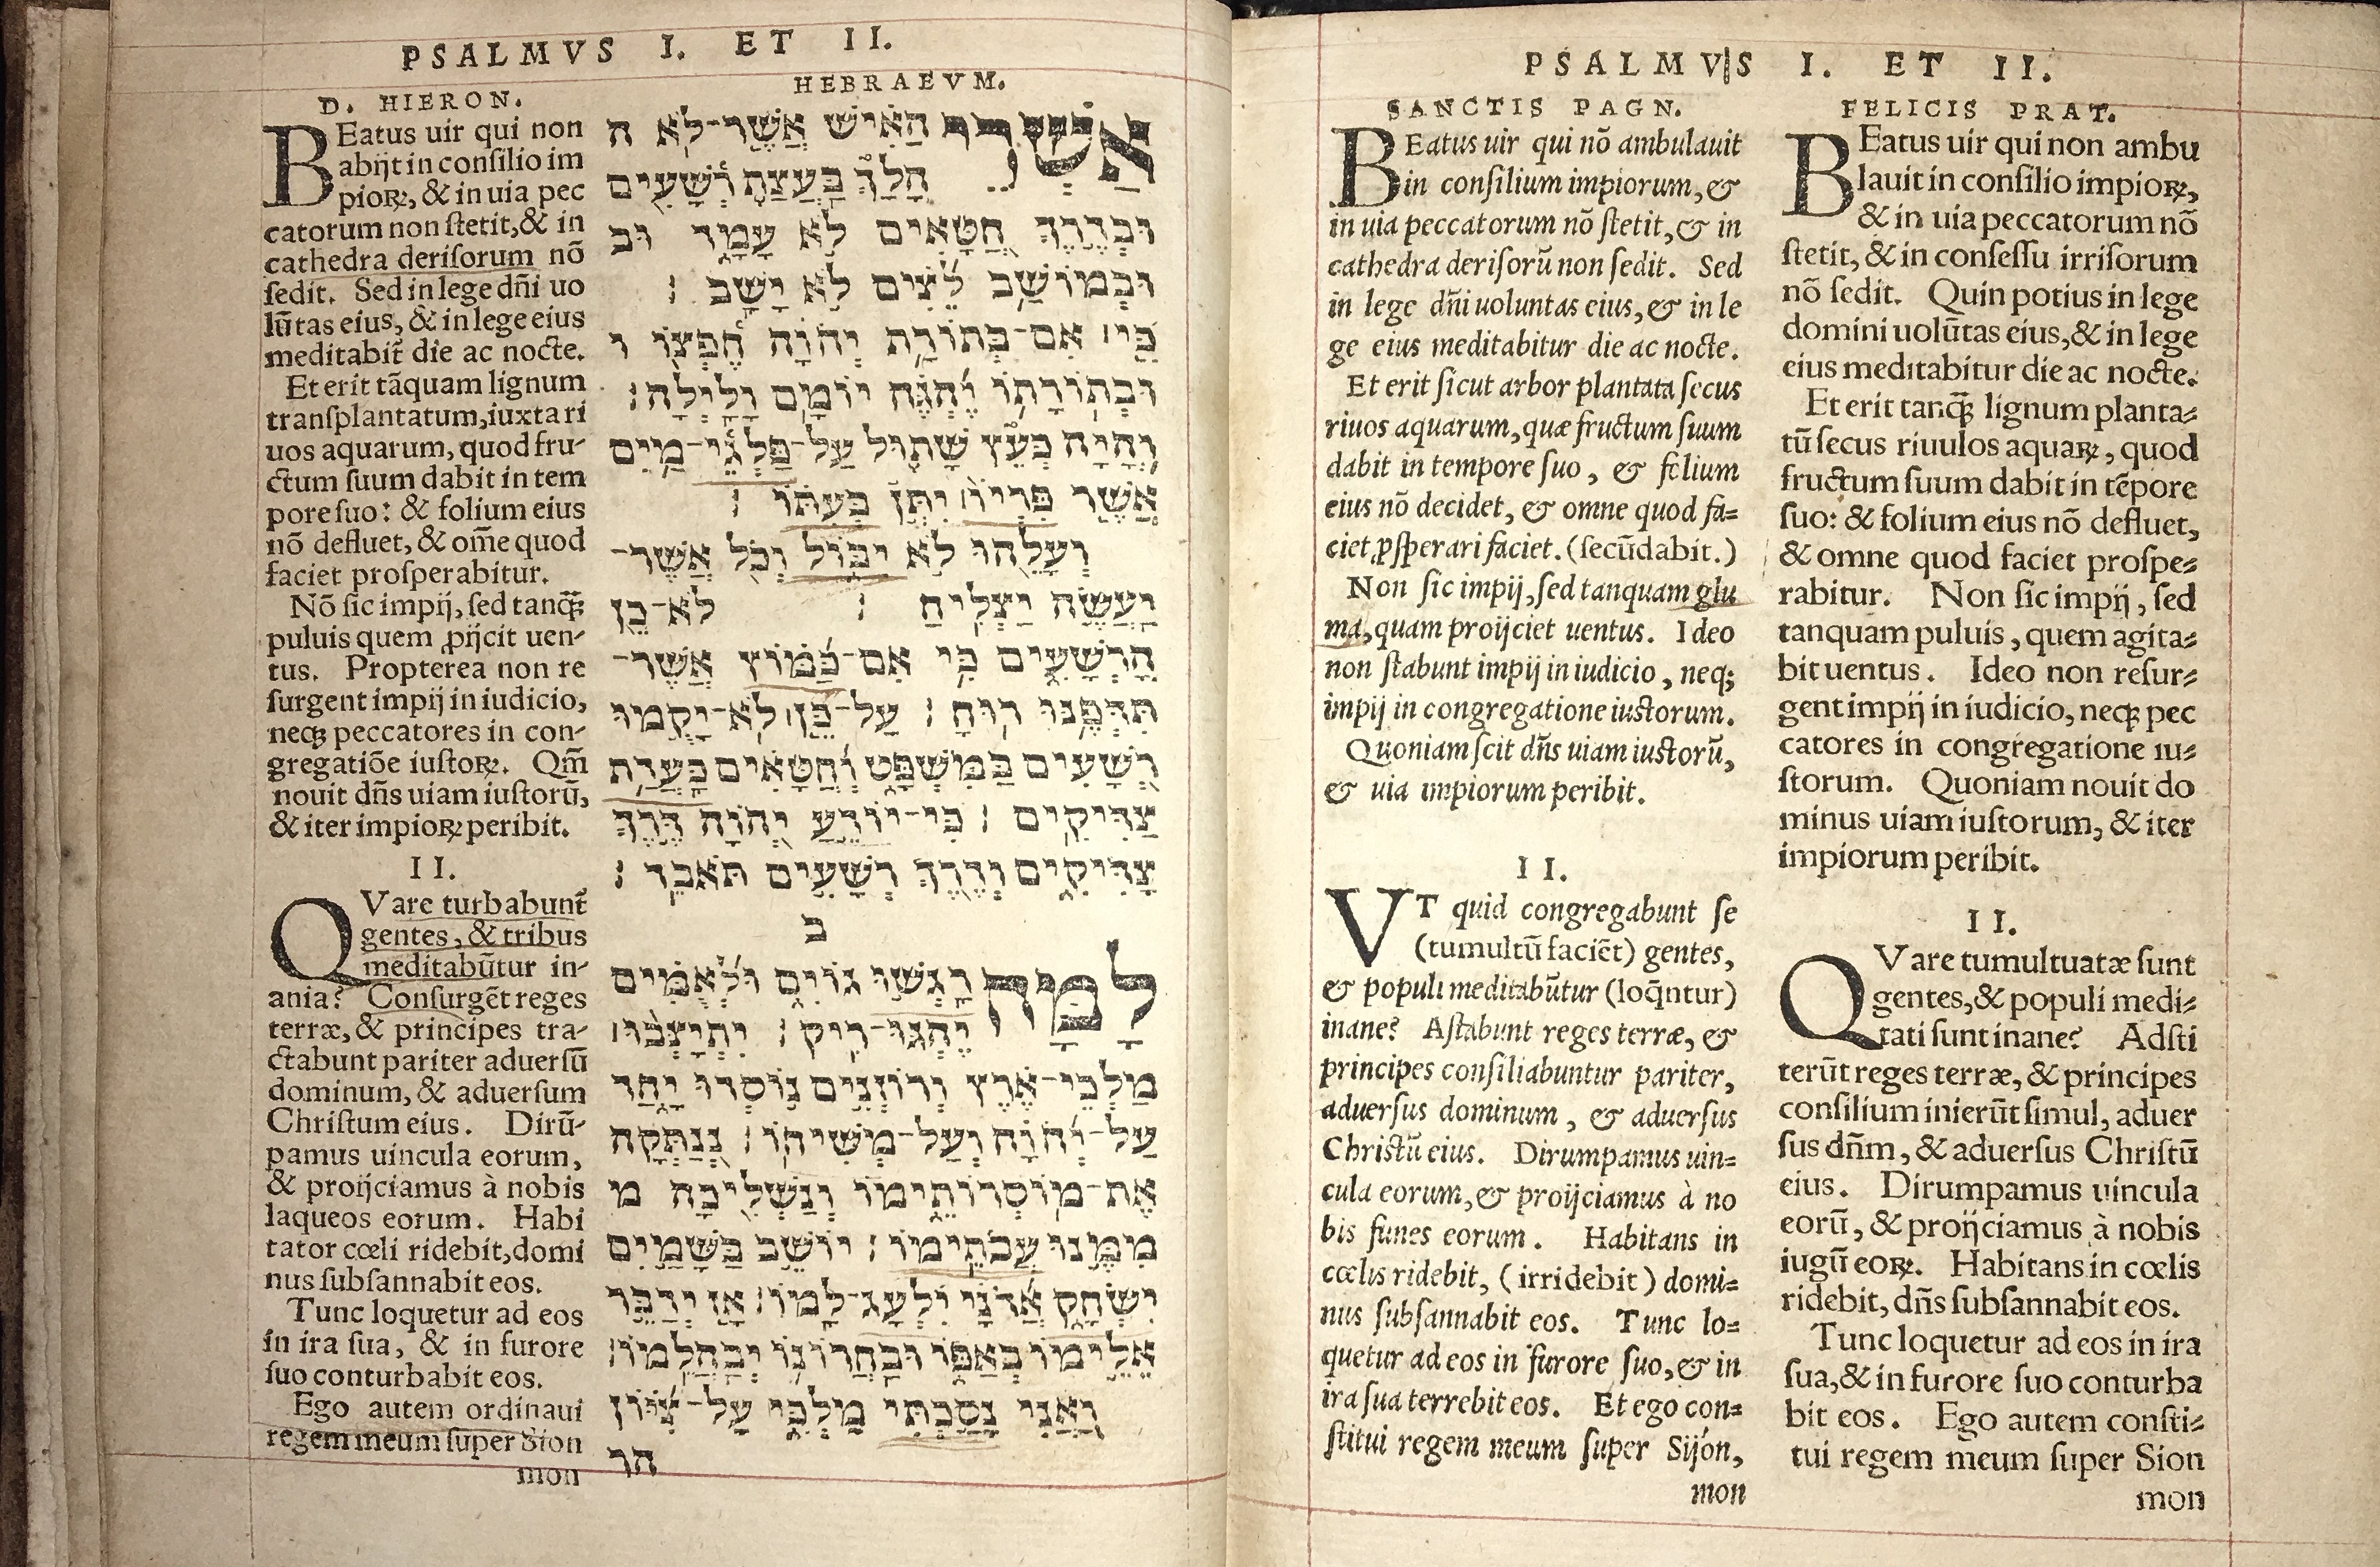 PSALMVS I. ET II.
D. HIERON.
BEatus uir qui non
abijt in conſilio im
pioꝝ, & in uia pec
catorum non ſtetit, & in
cathedra deriſorum nō
ſedit. Sed in lege dñi uo
lūtas eius, & in lege eius
meditabit᷑ die ac nocte.
Et erit tāquam lignum
tranſplantatum, iuxta ri
uos aquarum, quod fru-
ctum ſuum dabit in tem
pore ſuo: & folium eius
nō defluet, & om̄e quod
faciet proſperabitur.
Nō ſic impij, ſed tanꝙ̃
puluis quem ꝓijcit uen-
tus. Propterea non re
ſurgent impij in iudicio,
neqꝫ peccatores in con-
gregatiōe iuſtoꝝ. Qm̄
nouit dñs uiam iuſtorū,
& iter impioꝝ peribit.
II.
QVare turbabunt᷑
gentes, & tribus
meditabūtur in-
ania? Conſurgēt reges
terræ, & principes tra-
ctabunt pariter aduerſū
dominum, & aduerſum
Chriſtum eius. Dirū-
pamus uincula eorum,
& proijciamus à nobis
laqueos eorum. Habi
tator cœli ridebit, domi
nus ſubſannabit eos.
Tunc loquetur ad eos
in ira ſua, & in furore
ſuo conturbabit eos.
Ego autem ordinaui
regem meum ſuper Sion
mon
HEBRAEVM.
אַשְׁרֵי הָאִישׁ אֲשֶׁר־לֹא ה
הָלַךְ בַּעֲצַת רְשָׁעִים
וּבְדֶרֶךְ חַטָּאִים לֹא עָמָד וב
וּבְמוֹשַׁב לֵצִים לֹא יָשָׁב׃
כִּי אִם־בְּתוֹרַת יְהוָֹה חֶפְצוֹ ו
וּבְתוֹרָתוֹ יֶהְגֶּה יוֹמָם וָלָיְלָה׃
וְהָיָה כְּעֵץ שָׁתוּל עַל־פַּלְגֵי־מָיִם
אֲשֶׁר פִּרְיוֹ יִתֵּן בְּעִתּוֹ׃
וְעָלֵהוּ לֹא יִבּוֹל וְכֹל אֲשֶׁר־
יַעֲשֶׂה יַצְלִיחַ׃ לֹא־כֵן
הָרְשָׁעִים כִּי אִם־כַּמּוֹץ אֲשֶׁר־
תִּדְּפֶנּוּ רוּחַ׃ עַל־כֵּן לֹא־יָקֻמוּ
רְשָׁעִים בַּמִּשְׁפָּט וְחַטָּאִים בַּעֲדַת
צַדִּיקִים׃ כִּי־יוֹדֵעַ יְהוָֹה דֶּרֶךְ
צַדִּיקִים וְדֶרֶךְ רְשָׁעִים תֹּאבֵד׃
ב
לָמָּה רָגְשׁוּ גוֹיִם וּלְאֻמִּים
יֶהְגּוּ־רִיק׃ יִתְיַצְּבוּ
מַלְכֵי־אֶרֶץ וְרוֹזְנִים נוֹסְדוּ יָחַד
עַל־יְהוָֹה וְעַל־מְשִׁיחוֹ׃ נְנַתְּקָה
אֶת־מוֹסְרוֹתֵימוֹ וְנַשְׁלִיכָה מ
מִמֶּנּוּ עֲבֹתֵימוֹ׃ יוֹשֵׁב בַּשָּׁמַיִם
יִשְׂחָק אֲדֹנָי יִלְעַג־לָמוֹ׃ אָז יְדַבֵּר
אֵלֵימוֹ בְאַפּוֹ וּבַחֲרוֹנוֹ יְבַהֲלֵמוֹ׃
וַאֲנִי נָסַכְתִּי מַלְכִּי עַל־צִיּוֹן
הר
PSALMVS I. ET II.
SANCTIS PAGN.
BEatus uir qui nō ambulauit
in conſilium impiorum, &
in uia peccatorum nō ſtetit, & in
cathedra deriſorū non ſedit. Sed
in lege dñi uoluntas eius, & in le
ge eius meditabitur die ac nocte.
Et erit ſicut arbor plantata ſecus
riuos aquarum, quæ fructum ſuum
dabit in tempore ſuo, & folium
eius nō decidet, & omne quod fa=
ciet, ꝓſperari faciet. (ſecūdabit.)
Non ſic impij, ſed tanquam glu
ma, quam proijciet uentus. Ideo
non ſtabunt impij in iudicio, neqꝫ
impij in congregatione iuſtorum.
Quoniam ſcit dñs uiam iuſtorū,
& uia impiorum peribit.
II.
VT quid congregabunt ſe
(tumultū faciēt) gentes,
& populi meditabūtur (loq̄ntur)
inane? Aſtabunt reges terræ, &
principes conſiliabuntur pariter,
aduerſus dominum, & aduerſus
Chriſtū eius. Dirumpamus uin=
cula eorum, & proijciamus à no
bis funes eorum. Habitans in
cœlis ridebit, (irridebit) domi=
nus ſubſannabit eos. Tunc lo=
quetur ad eos in furore ſuo, & in
ira ſua terrebit eos. Et ego con=
ſtitui regem meum ſuper Sijon,
mon
FELICIS PRAT.
BEatus uir qui non ambu
lauit in conſilio impioꝝ,
& in uia peccatorum nō
ſtetit, & in conſeſſu irriſorum
nō ſedit. Quin potius in lege
domini uolūtas eius, & in lege
eius meditabitur die ac nocte.
Et erit tanꝙ̃ lignum planta=
tū ſecus riuulos aquaꝝ, quod
fructum ſuum dabit in tēpore
ſuo: & folium eius nō defluet,
& omne quod faciet proſpe=
rabitur. Non ſic impij, ſed
tanquam puluis, quem agita=
bit uentus. Ideo non reſur=
gent impij in iudicio, neqꝫ pec
catores in congregatione iu=
ſtorum. Quoniam nouit do
minus uiam iuſtorum, & iter
impiorum peribit.
II.
QVare tumultuatæ ſunt
gentes, & populi medi=
tati ſunt inane? Adſti
terūt reges terræ, & principes
conſilium inierūt ſimul, aduer
ſus dñm, & aduerſus Chriſtū
eius. Dirumpamus uincula
eorū, & proijciamus à nobis
iugū eoꝝ. Habitans in cœlis
ridebit, dñs ſubſannabit eos.
Tunc loquetur ad eos in ira
ſua, & in furore ſuo conturba
bit eos. Ego autem conſti=
tui regem meum ſuper Sion
mon